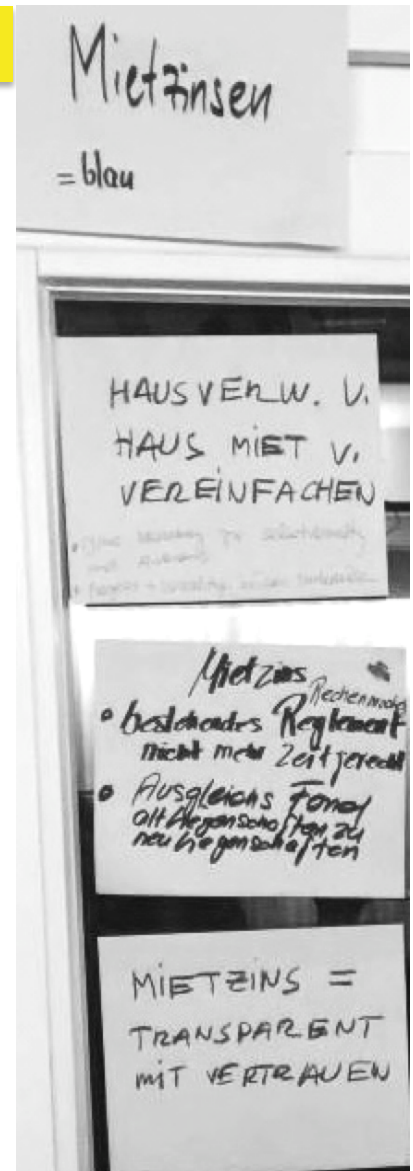 Mietzinsen
= blau
HAUSVERW. V.
HAUS MIET V.
VEREINFACHEN
Mietzins
Rechenmodel
• bestehendes Reglement
nicht mehr Zeitgerecht
• Ausgleichs Fond
alt Liegenschaften zu
neu Liegenschaften
MIETZINS =
TRANSPARENT
MIT VERTRAUEN